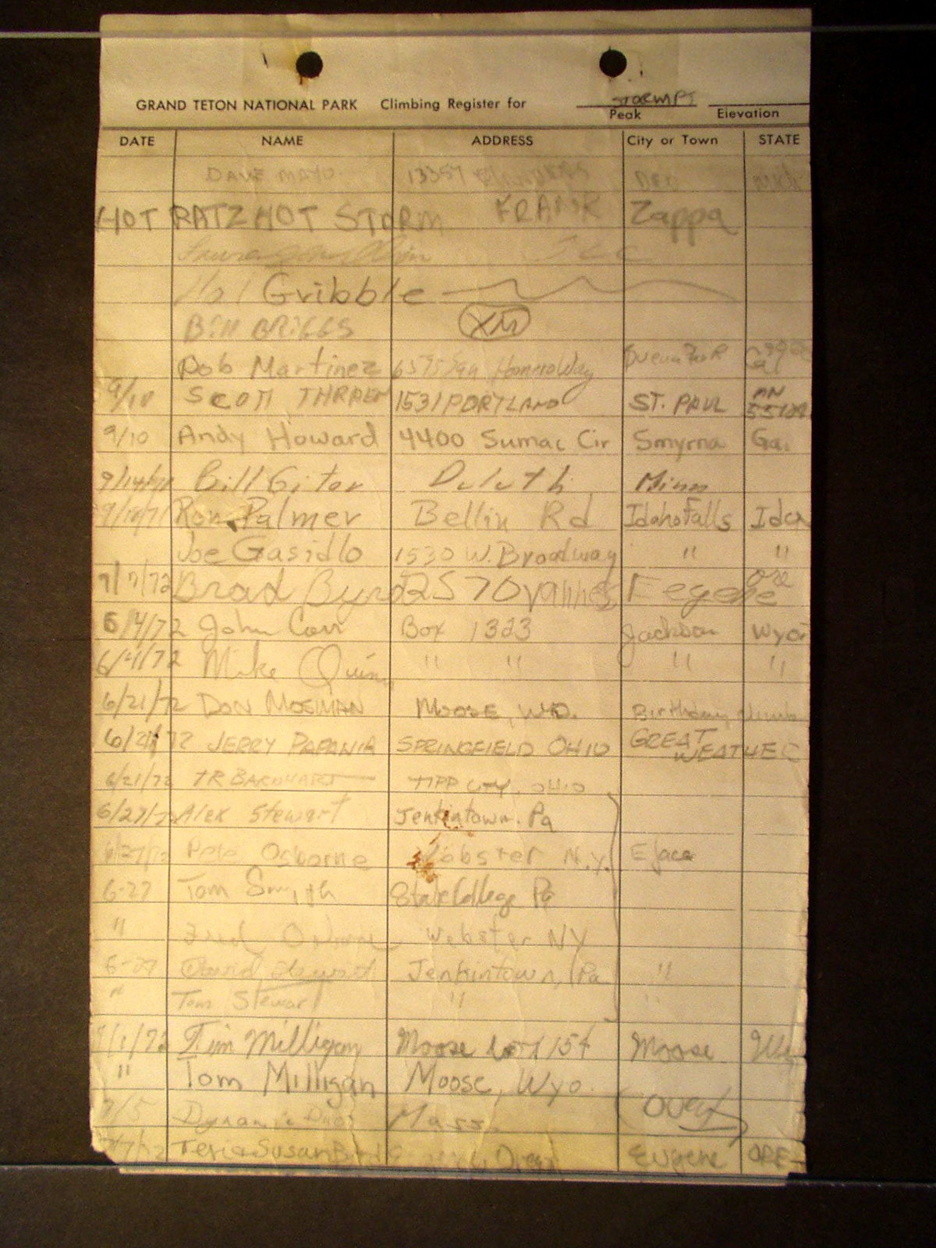 GRAND TETON NATIONAL PARK Climbing Register for STORM PT
Peak Elevation
DATE NAME ADDRESS City or Town STATE
DAVE MAYO 13357
HOT RATZ HOT STORM FRANK Zappa
Hal Gribble
BILL BRIGGS XM
Rob Martinez 6575 San Way Buena Park Cal
9/10 SCOTT 1531 PORTLAND ST. PAUL MN
9/10 Andy Howard 4400 Sumac Cir Smyrna Ga.
9/14/71 Bill Duluth Minn
Ron Palmer Bellin Rd Idaho Falls Ida
Joe Gasidlo 1530 W. Broadway " "
7/7/72 Brad Byrd 2570 Ore
6/4/72 John Box 1323 Jackson Wyo.
6/4/72 Mike Quinn " " " "
6/21/72 DON MOSMAN MOOSE, WYO. Birthday climb
6/21/72 JERRY PAPANIA SPRINGFIELD OHIO GREAT WEATHER
6/21/72 TR BARNHART TIPP CITY, OHIO
6/27/72 Alex Stewart Jenkintown. Pa
6/27/72 Pete Osborne Webster N.Y. E face
6-27 Tom Smyth State College Pa
" Fred Webster NY
6-27 David Stewart Jenkintown, Pa "
" Tom Stewart " "
7/1/72 Tim Milligan Moose 154 Moose Wy
" Tom Milligan Moose, Wyo.
7/5 Dynamic Duo Mass. Over
7/7/72 Eugene ORE